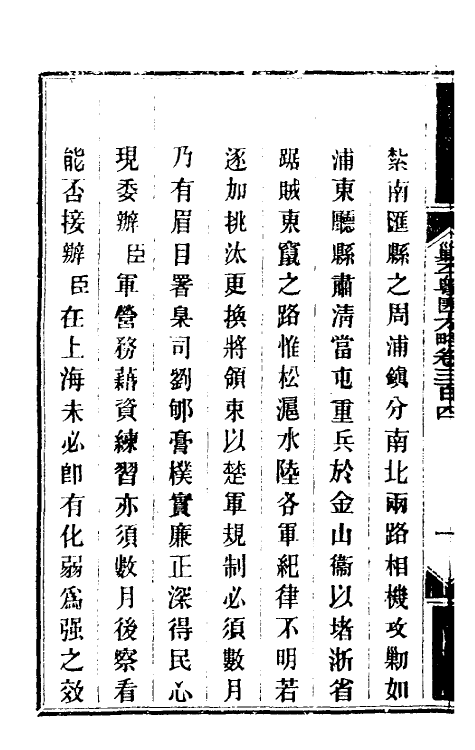 紮南匯縣之周浦鎮分南北兩路相機攻勦如
浦東廳縣肅清當屯重兵於金山衞以堵浙省
踞賊東竄之路惟松滬水陸各軍紀律不明若
逐加挑汰更換將領束以楚軍規制必須數月
乃有眉目署臬司劉郇膏樸實廉正深得民心
現委辦臣軍營務藉資練習亦須數月後察看
能否接辦臣在上海未必卽有化弱爲强之效
剿平粵匪方略卷三百四
一